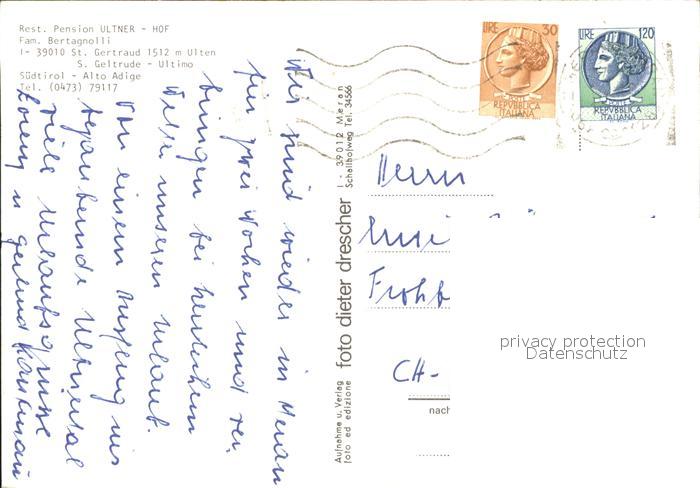 Rest. Pension ULTNER - HOF
Fam. Bertagnolli
I- 39010 St. Gertraud 1512 m Ulten
S. Geltrude - Ultimo
Südtirol - Alto Adige
Tel. (0473) 79117
Wir sind wieder in Meran
für zwei Wochen und ver-
bringen bei herrlichem
Wetter unseren Urlaub.
Von einem Ausflug ins
bezaubernde Ultental
viele Urlaubsgrüsse
u Gerlind
Aufnahme u. Verlag
foto ed edizione
foto dieter drescher
I - 39012 Meran
Schallhofweg Tel. 34556
LIRE 30
POSTE
REPVBBLICA
ITALIANA
LIRE 120
POSTE
REPVBBLICA
ITALIANA
Herrn
Frohb
CH-
nach
privacy protection
Datenschutz